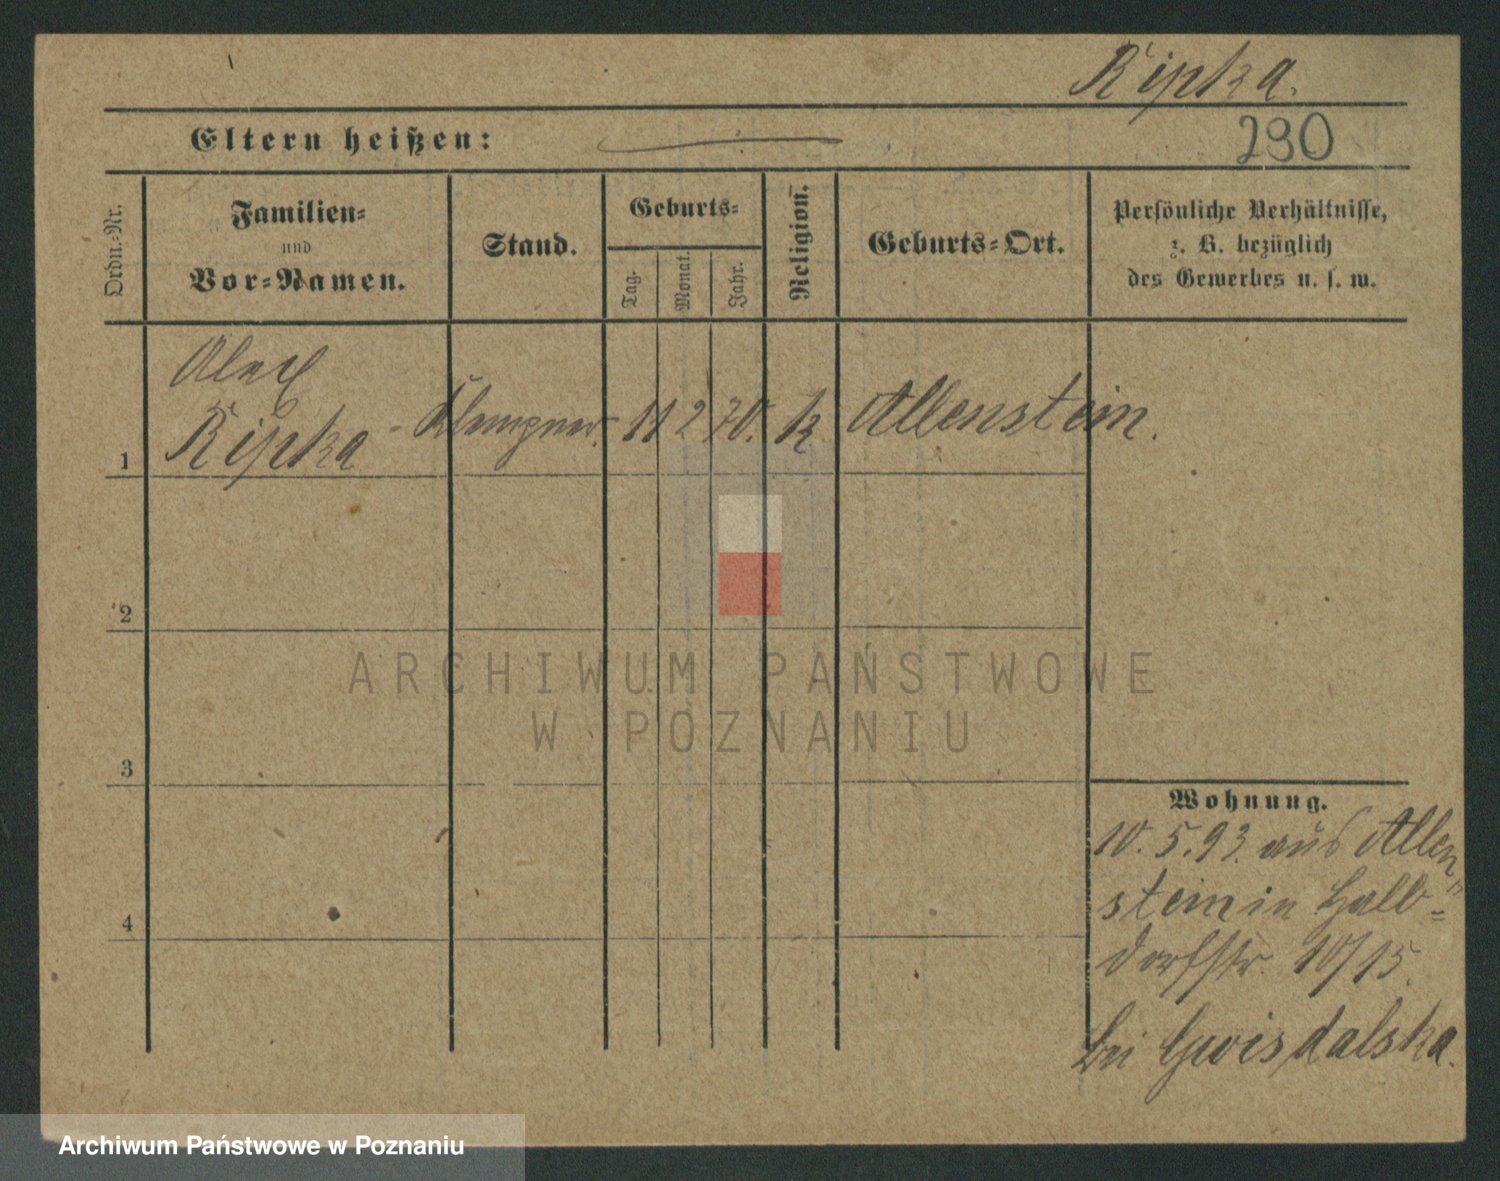 Ripka.
Eltern heißen:
290
Ordn.-Nr.
Familien-
und
Vor-Namen.
Stand.
Geburts-
Tag.
Monat.
Jahr.
Religion.
Geburts-Ort.
Persönliche Verhältnisse,
z. B. bezüglich
des Gewerbes u. s. w.
Alex
1 Ripka Klempner. 11 2 70. k Allenstein.
2
3
4
ARCHIWUM PAŃSTWOWE
W POZNANIU
Wohnung.
10. 5. 93. aus Allen
stein in Halb-
dorfstr. 10/15.
bei Gwisdalska.
Archiwum Państwowe w Poznaniu